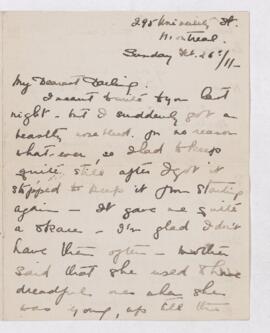 295 University St.
Montreal.
Sunday Feb. 26th/11 –
My Dearest Darling:
I meant to write to you last
night – but I suddenly got a
beastly nose bleed for no reason
what-ever, so I had to keep
quite still after I got it
stopped to keep it from starting
again – It gave me quite
a scare – I'm glad I don't
have them often – mother
said that she used to have
dreadful ones when she
was young, up till the